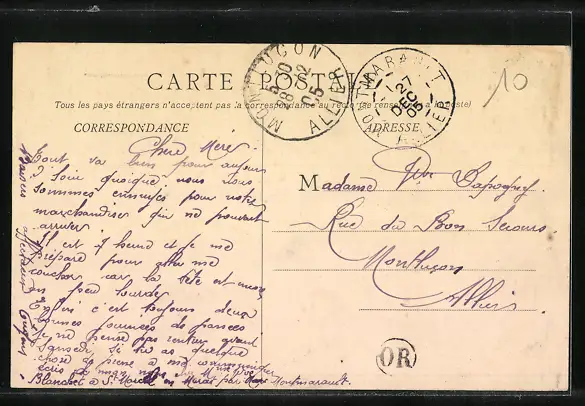 CARTE POSTALE
Tous les pays étrangers n'acceptent pas la correspondance au recto (se renseigner à la poste)
CORRESPONDANCE
ADRESSE
MONTLUÇON ALLIER
5 30
28 12
05
MONTMARAULT ALLIER
27
DEC
05
10
Chère Mère
Tout va bien pour aujour
d'hui quoique nous nous
sommes ennuyés pour votre
marchandise qui ne pouvait
arriver.
Il est 7 heure et je me
prépare pour aller me
coucher car la tête est encore
un peu lourde.
Enfin c'est toujours deux
bonnes journées de passées
Je ne pense pas rentrer avant
Samedi, si tu as quelque
chose de pressé à me
Blanchet à St Marcel en Murat par Montmarault.
Madame Vve
Rue du Bon Secours
Montluçon
Allier
OR